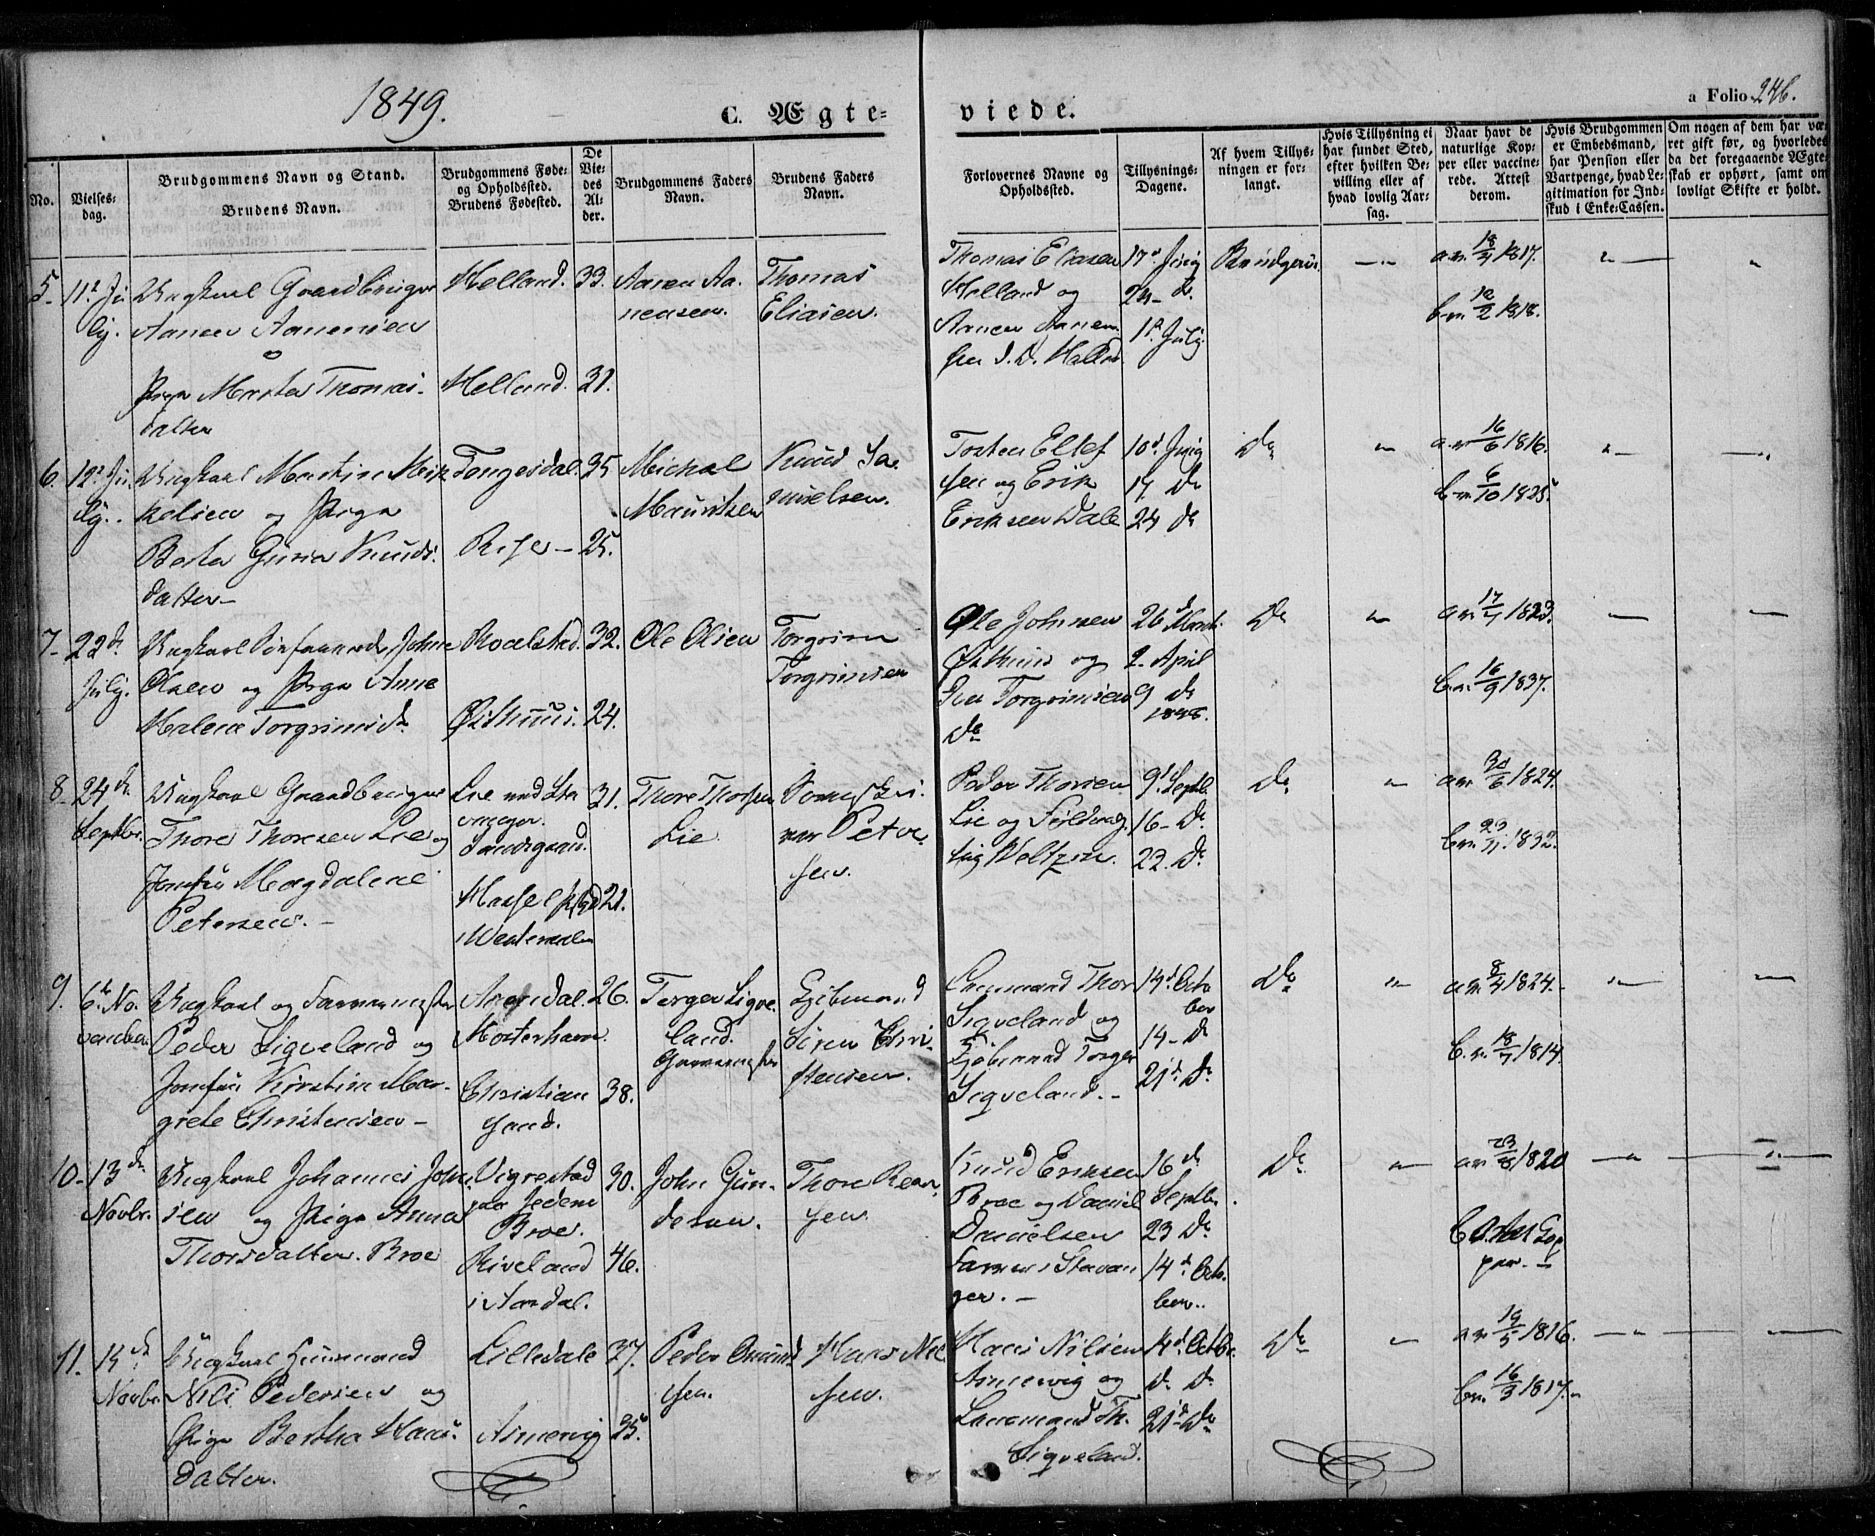 1849.
C. Ægte-
viede.
a Folio 246.
No.
Vielses-
dag.
Brudgommens Navn og Stand.
Brudens Navn.
Brudgommens Føde-
og Opholdsted.
Brudens Fødested.
De
Vie-
des
Al-
der.
Brudgommens Faders
Navn.
Brudens Faders
Navn.
Forlovernes Navne og
Opholdsted.
Tillysnings-
Dagene.
Af hvem Tillys-
ningen er for-
langt.
Hvis Tillysning ei
har fundet Sted,
efter hvilken Be-
villing eller af
hvad lovlig Aar-
sag.
Naar havt de
naturlige Kop-
per eller vaccine-
rede. Attest
derom.
Hvis Brudgommen
er Embedsmand,
har Pension eller
Vartpenge, hvad Le-
gitimation for Ind-
skud i Enke-Cassen.
Om nogen af dem har væ-
ret gift før, og hvorledes
da det foregaaende Ægte-
skab er ophørt, samt om
lovligt Skifte er holdt.
5. 11te Ju-
ly.
Ungkarl Gaardbruger
Aanen Aanensen
Pige Marta Thomas-
datter
Helland. 33.
Helland. 31.
Aanen Aa-
nensen.
Thomas
Eliasen.
Thomas Eliasen
Helland og
Aanen Aanen-
sen
17d Juny
24- do
1st July.
a. v. 18/4 1817.
b. v. 12/2 1818.
6. 12te Ju-
ly.
Ungkarl Martin Mik-
kelsen og Pige
Berta Guria Knuds-
datter
Tengesdal. 35
25.
Michal
Mauritsen
Knud Sa-
muelsen.
Tosten Ellef-
sen og Erik
Eriksen Dale
10d Juny
17 do
24 do
Do
a. v. 16/6 1816.
b. v. 6/10 1825
7. 22d
July.
Ungkarl Johne
Olsen og Pige Anne
Malene Torgrimsd.
32.
Østhuus. 24.
Ole Olsen
Torgrim
Torgrimsen
Ole Johnsen
Østhuus og
Torgrimsen
Do
26d Marti
2. April
9 do
Do
a. v. 17/4 1823.
b. v. 16/9 1837.
8. 24de
Septbr.
Ungkarl Gaardbruger
Thore Thoresen Lie og
Jomfru Magdalene
Petersen.
Lie ved Sta-
vanger.
31.
21.
Thore Thorsen
Lie
Peter-
sen.
Peder Thorsen
Lie og
Weltzin.
9d Septb.
16- do
23. do
Do
a. v. 30/6 1824.
b. v. 23/11 1832.
9. 6te No-
vember
Ungkarl og Farvermester
Peder Sigveland og
Jomfru Kirstin Mar-
grete Christensen
Arendal. 26.
Christian-
sand. 38.
Torger Sigve-
land.
Garvermester
Kjøbmand
Sören Chri-
stensen.
Lensmand Thor
Sigveland og
Kjøbmand Torger
Sigveland.
14d Octo-
ber
14- do
21d do
Do
a. v. 8/7 1824.
b. v. 18/7 1814.
10. 13de
Novbr.
Ungkarl Johannes John-
sen og Pige Anna
Thorsdatter Broe
Vigrestad
paa Jederen
Broe.
30.
Riveland
i Aardal. 46.
John Gun-
dersen.
Thore Rear-
sen.
Knud Eriksen
Broe og Daniel
Danielsen
Farver i Stavan-
ger.
16d
Septbr.
23 do
14d Octo-
ber.
Do
a. v. 23/8 1820
b.
11. 14de
Novbr.
Ungkarl Huusmand
Nils Pedersen og
Pige Bertha Hans-
datter.
Lilledale 37.
35.
Peder Omund-
sen.
Hans Niel-
sen.
Hans Nilsen
og
Lensmand Th.
Sigveland.
14d Octbr.
do do
21d do
Do
a. v. 19/5 1816.
b. v. 16/3 1817.